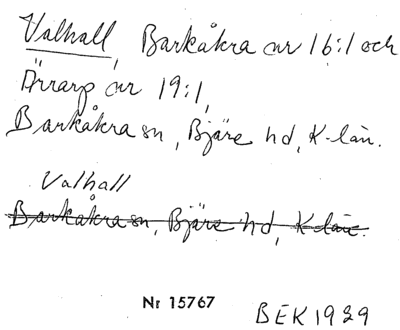 Valhall, Barkåkra nr 16:1 och
Örrarp nr 19:1,
Barkåkra sn, Bjäre hd, K-län.
Valhall
Barkåkra sn, Bjäre hd, K-län.
Nr 15767
BEK 1929